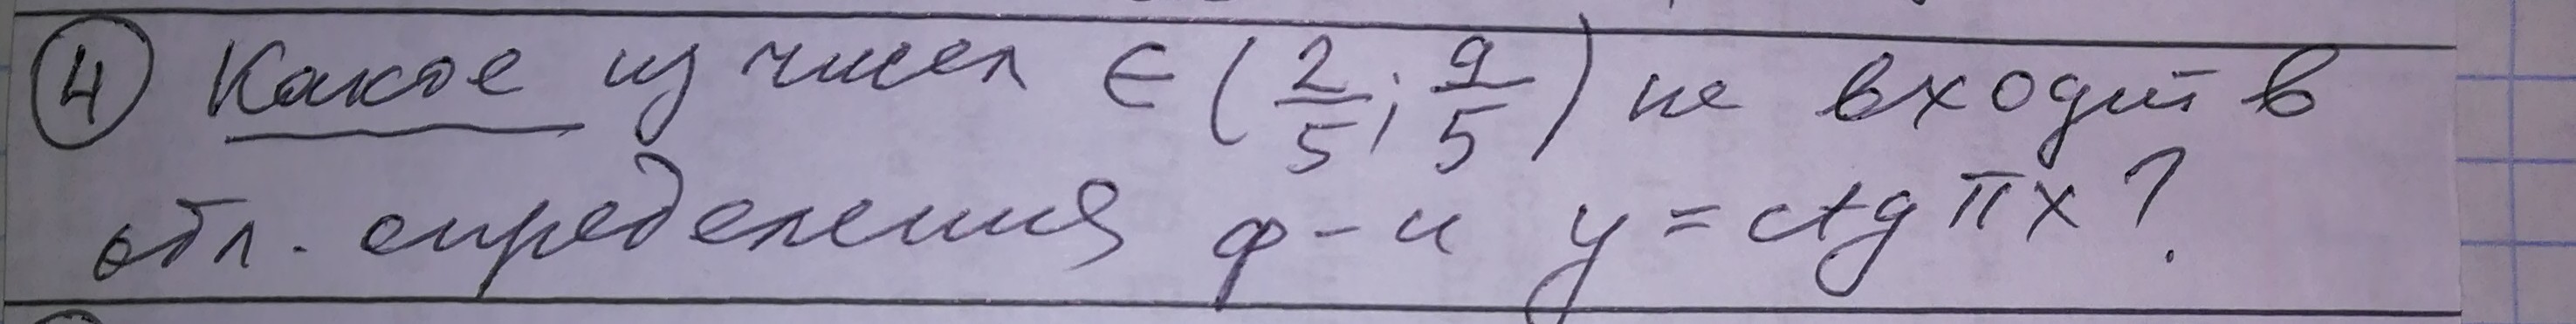 ④ Какое из чисел ∈ (2/5; 9/5) не входит в
обл. определения ф-и y = ctg πx?